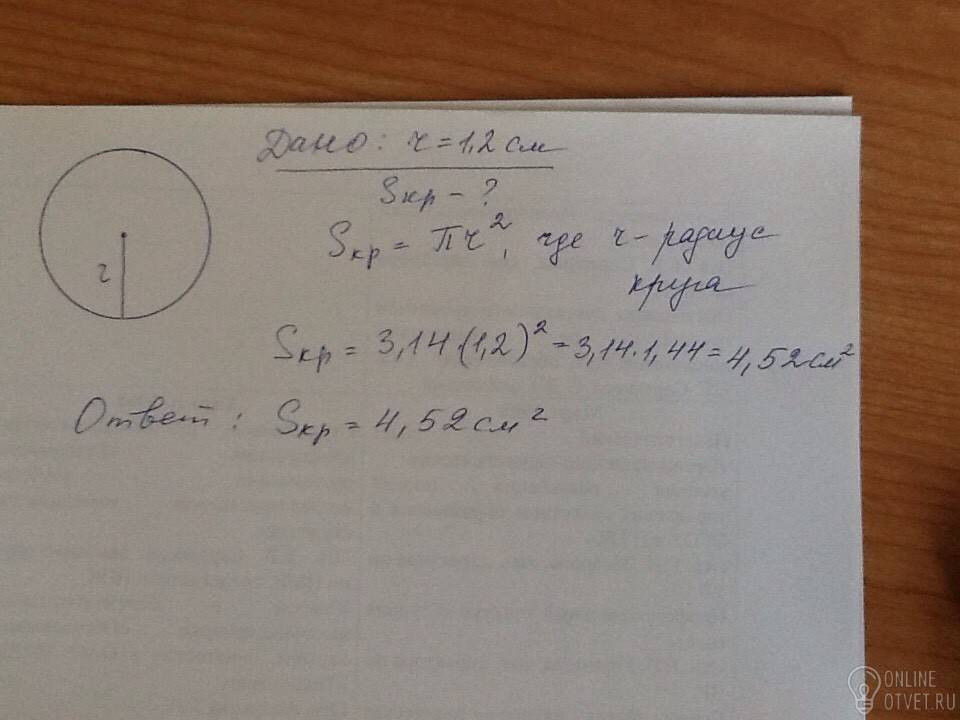 Дано: r = 1,2 см
Sкр - ?
Sкр = Πr², где r - радиус
круга
r
Sкр = 3,14·(1,2)² = 3,14·1,44 = 4,52 см²
Ответ: Sкр = 4,52 см²
ONLINE
OTVET.RU